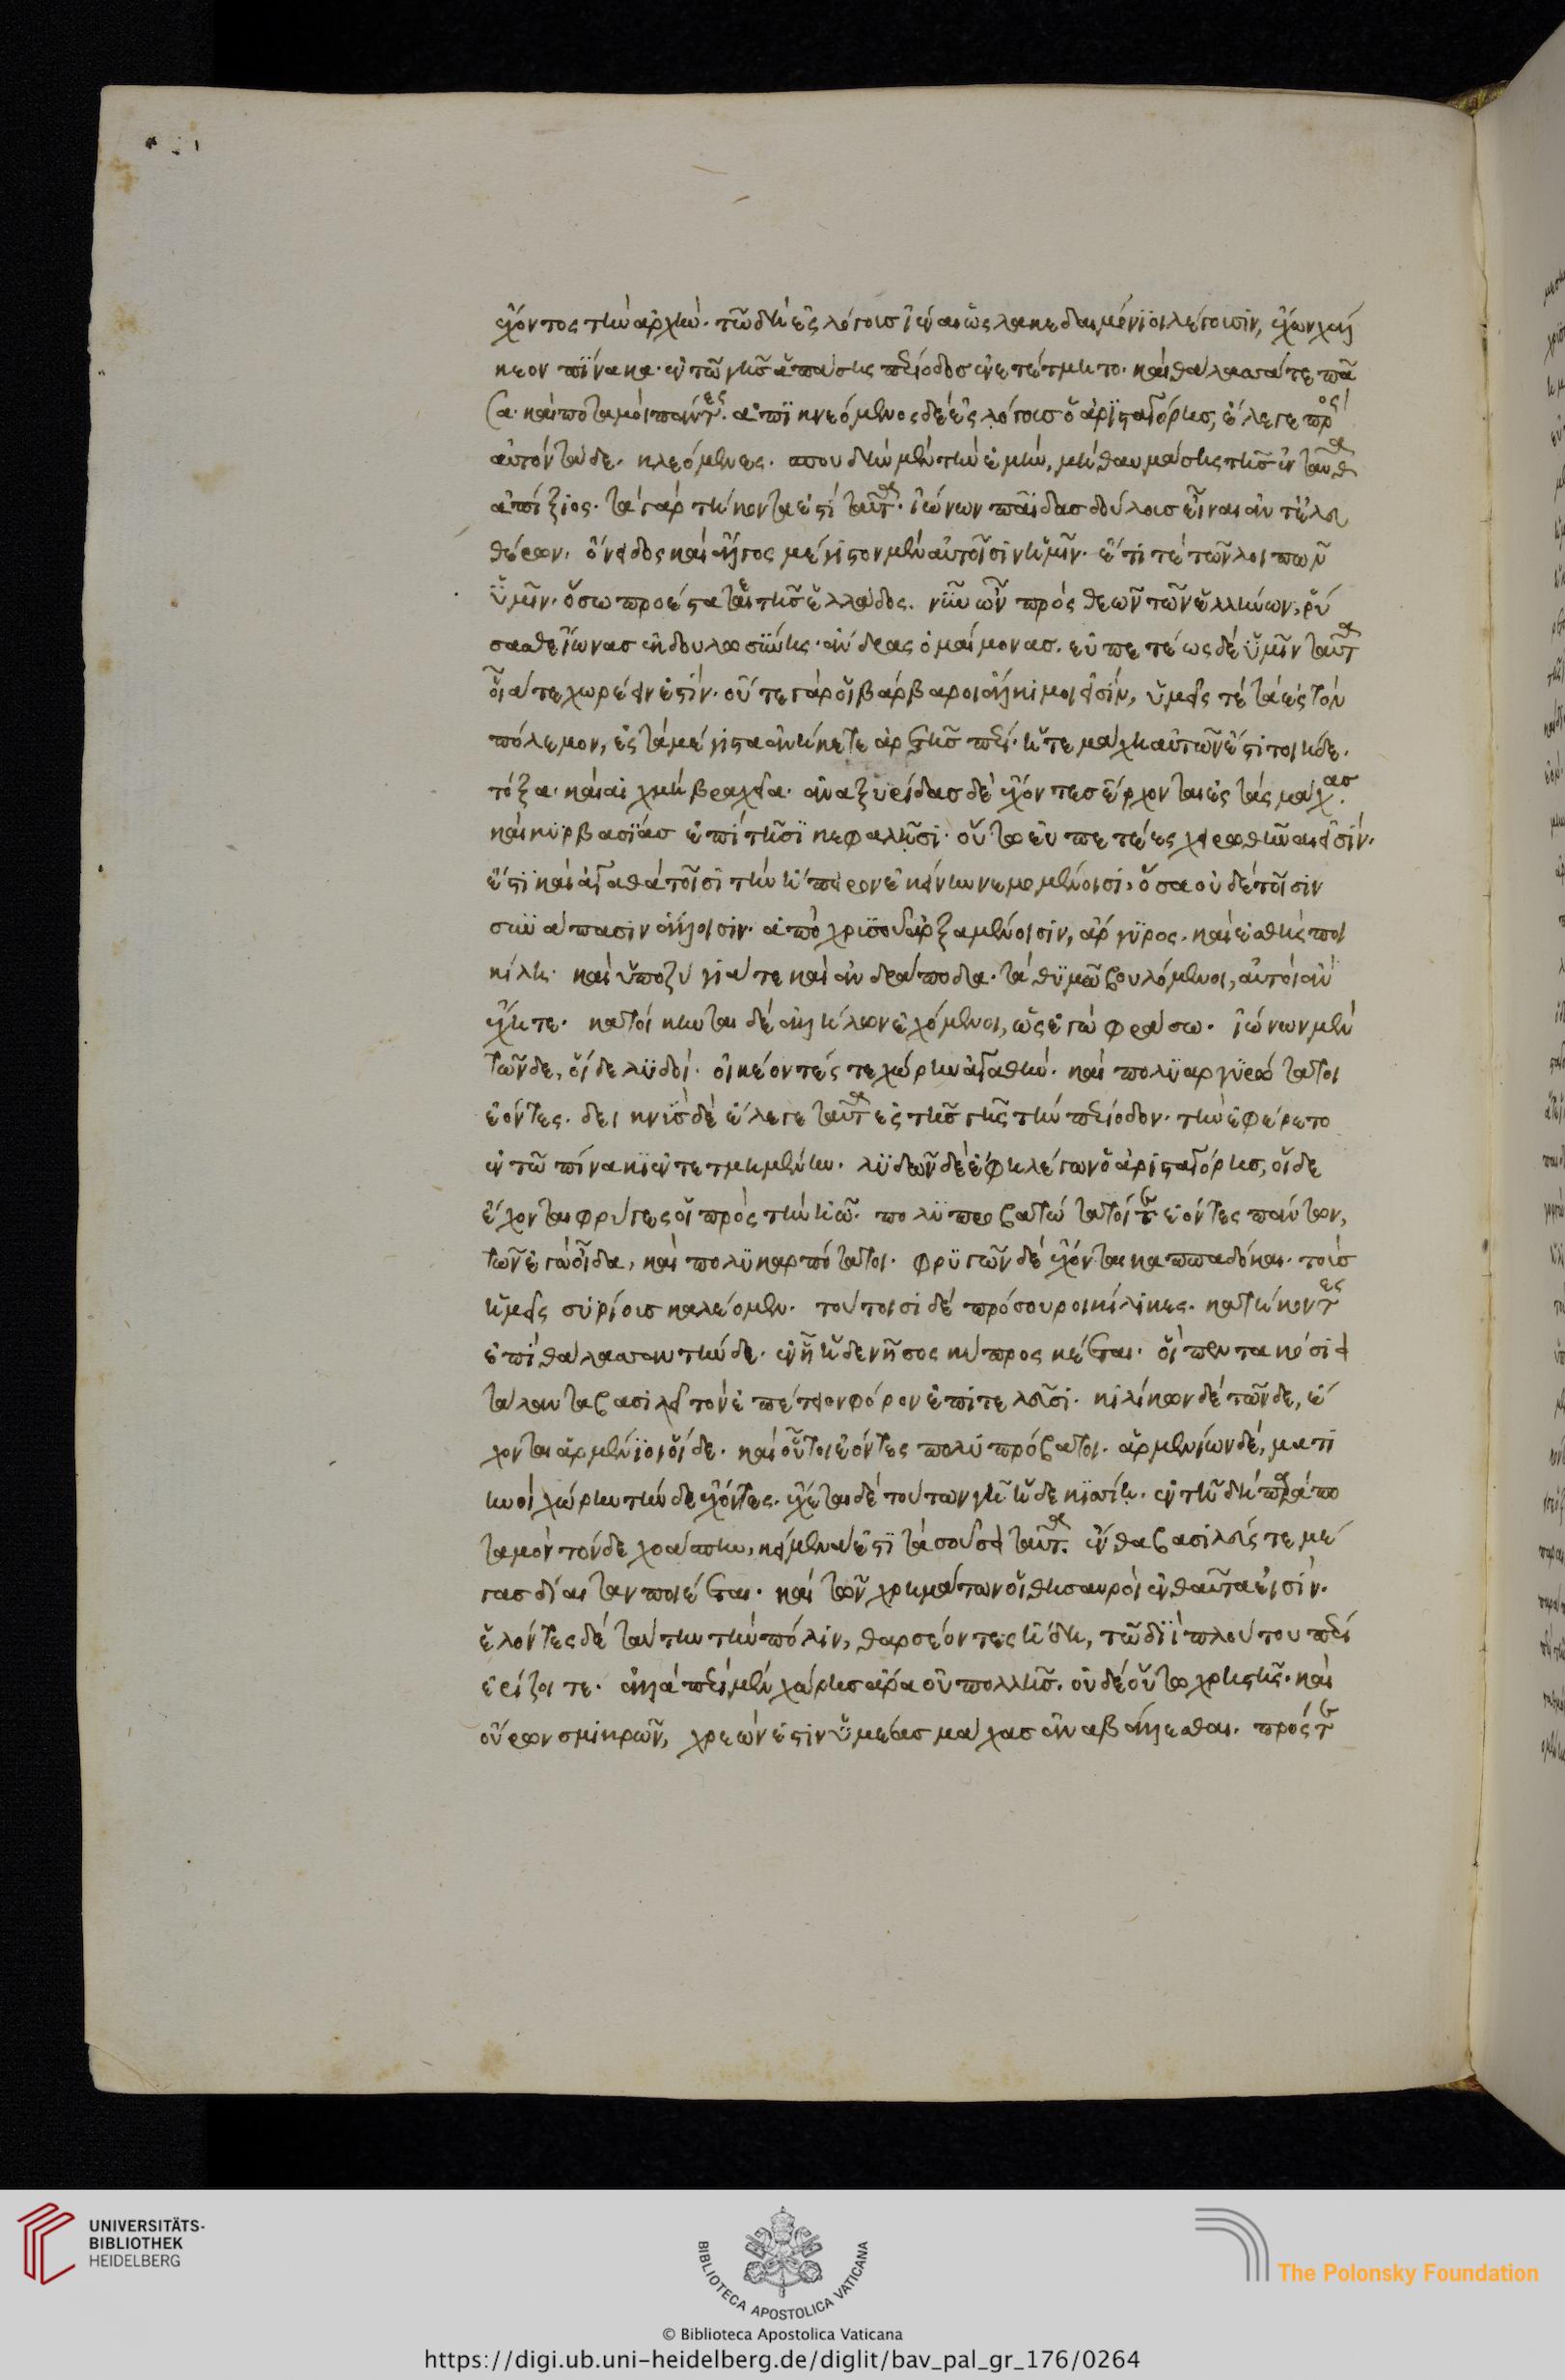 ἔχοντος τὴν ἀρχήν. τῶ δὴ ἐς λόγους ἰέναι ὡς λακεδαιμόνιοι λέγουσιν, ἔχων χάλ
κεον πίνακα. ἐν τῶ γῆς ἁπάσης περίοδος ἐνετέτμητο. καὶ θάλασσά τε πᾶ
σα. καὶ ποταμοὶ πάντες. ἀπικνεόμενος δὲ ἐς λόγους ὁ ἀρισταγόρης, ἔλεγε πρὸς
αὐτὸν τάδε. κλεόμενες. σπουδὴν μὲν τὴν ἐμὴν, μὴ θαυμάσης τῆς ἐνταῦθα
ἀπίξιος. τὰ γὰρ τήκοντα ἐστὶ ταῦτα. ἰώνων παῖδας δούλους εἶναι ἀντ' ἐλευ
θέρων, ὄνειδος καὶ ἄλγος μέγιστον μὲν αὐτοῖσιν ἡμῖν. ἔτι τὲ τῶν λοιπῶν
ὑμῖν. ὅσω προέσταται τῆς ἑλλάδος. νῦν ὦν πρὸς θεῶν τῶν ἑλληνίων, ῥύ
σασθε ἴωνας ἐκ δουλοσύνης. ἄνδρας ὁμαίμονας. εὐπετέως δὲ ὑμῖν ταῦτα
οἷά τε χωρέειν ἐστίν. οὔτε γὰρ οἱ βάρβαροι ἄλκιμοι εἰσίν, ὑμεῖς τὲ τὰ ἐς τὸν
πόλεμον, ἐς τὰ μέγιστα ἀνήκετε ἀρετῆς πέρι. ἥ τε μάχη αὐτῶν ἐστὶ τοιήδε.
τόξα. καὶ αἰχμὴ βραχεῖα. ἀναξυρίδας δὲ ἔχοντες ἔρχονται ἐς τὰς μάχας.
καὶ κυρβασίας ἐπὶ τῆσι κεφαλῆσι. οὕτω εὐπετέες χειρωθῆναι εἰσίν.
ἔστι καὶ ἀγαθὰ τοῖσι τὴν ἤπειρον ἐκείνην νεμομένοισι, ὅσα οὐδὲ τοῖσιν
συνάπασιν ἄλλοισιν. ἀπὸ χρυσοῦ ἀρξαμένοισιν, ἄργυρος. καὶ ἐσθὴς ποι
κίλη. καὶ ὑποζύγιά τε καὶ ἀνδράποδα. τὰ θυμῶ βουλόμενοι, αὐτοὶ ἂν
ἔχητε. κατοίκηνται δὲ ἀλλήλων ἐχόμενοι, ὡς ἐγὼ φράσω. ἰώνων μὲν
τῶνδε, οἵδε λυδοί. οἰκέοντές τε χώρην ἀγαθήν. καὶ πολυαργυρώτατοι
ἐόντες. δεικνὺς δὲ ἔλεγε ταῦτα ἐς τῆς γῆς τὴν περίοδον. τὴν ἐφέρετο
ἐν τῶ πίνακι ἐντετμημένην. λυδῶν δὲ ἔφη λέγων ὁ ἀρισταγόρης, οἵδε
ἔχονται φρύγες οἱ πρὸς τὴν ἠῶ. πολυπροβατώτατοί τε ἐόντες πάντων,
τῶν ἐγὼ οἶδα, καὶ πολυκαρπότατοι. φρυγῶν δὲ ἔχονται καππαδόκαι. τοὺς
ἡμεῖς συρίους καλέομεν. τούτοισι δὲ πρόσουροι κίλικες. κατήκοντες
ἐπὶ θάλασσαν τήνδε. ἐν ἧ ἥδε νῆσος κύπρος κέεται. οἳ πεντακόσια
τάλαντα βασιλεῖ τὸν ἐπέτειον φόρον ἐπιτελεῦσι. κιλίκων δὲ τῶνδε, ἔ
χονται ἀρμένιοι οἵδε. καὶ οὗτοι ἐόντες πολυπρόβατοι. ἀρμενίων δὲ, ματι
ηνοὶ χώρην τήνδε ἔχοντες. ἔχεται δὲ τούτων γῆ ἥδε κισσίη. ἐν τῆ δὴ παρὰ πο
ταμὸν τόνδε χοάσπην, κείμενα ἐστὶ τὰ σοῦσα ταῦτα. ἔνθα βασιλεύς τε μέ
γας δίαιταν ποιέεται. καὶ τῶν χρημάτων οἱ θησαυροὶ ἐνθαῦτα εἰσίν.
ἑλόντες δὲ ταύτην τὴν πόλιν, θαρσέοντες ἤδη, τῶ διὶ πλούτου πέρι
ἐρίζοιτε. ἀλλὰ περὶ μὲν χώρης ἄρα οὐ πολλῆς. οὐδὲ οὕτω χρηστῆς. καὶ
οὔρων σμικρῶν, χρεών ἐστιν ὑμέας μάχας ἀναβάλλεσθαι. πρός τε
UNIVERSITÄTS-
BIBLIOTHEK
HEIDELBERG
BIBLIOTECA APOSTOLICA VATICANA
The Polonsky Foundation
© Biblioteca Apostolica Vaticana
https://digi.ub.uni-heidelberg.de/diglit/bav_pal_gr_176/0264